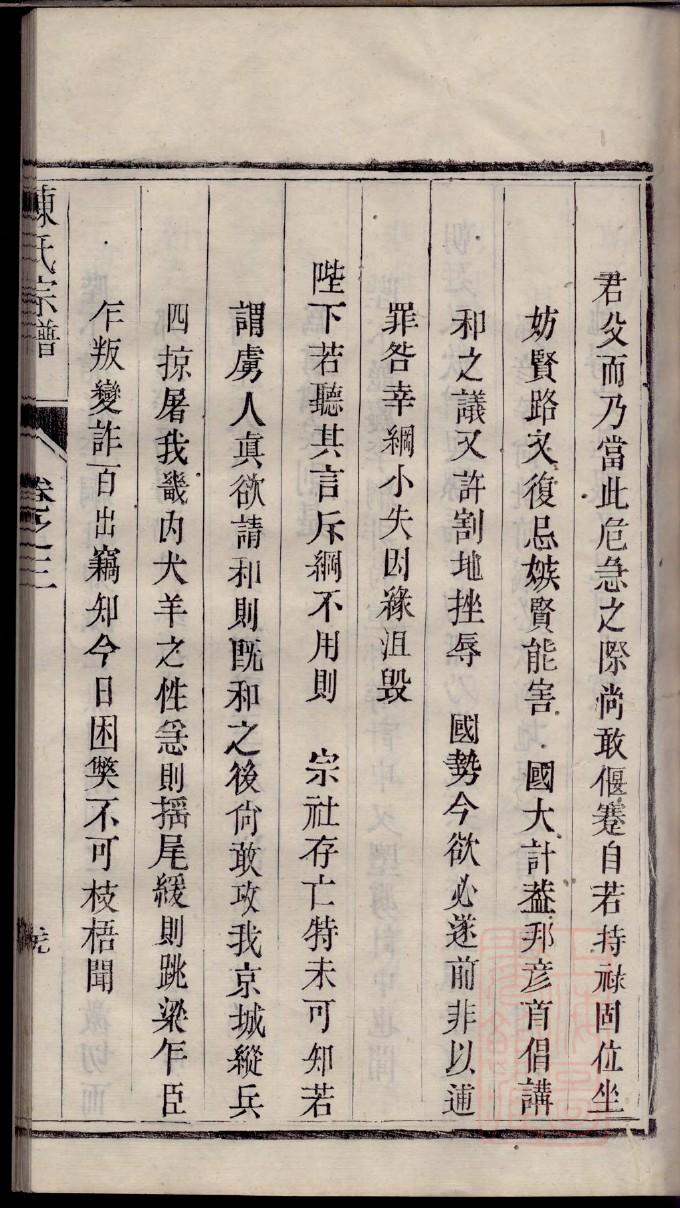 君父而乃當此危急之際尚敢偃蹇自若持祿固位坐
妨賢路又復忌嫉賢能害 國大計葢邦彥首倡講
和之議又許割地挫辱 國勢今欲必遂前非以逋
罪咎幸綱小失因緣沮毀
陛下若聽其言斥綱不用則 宗社存亡特未可知若
謂虜人真欲請和則既和之後尙敢攻我京城縱兵
四掠屠我畿內犬羊之性急則搖尾緩則跳梁乍臣
乍叛變詐百出竊知今日困獘不可枝梧聞
陳氏宗譜
卷之三